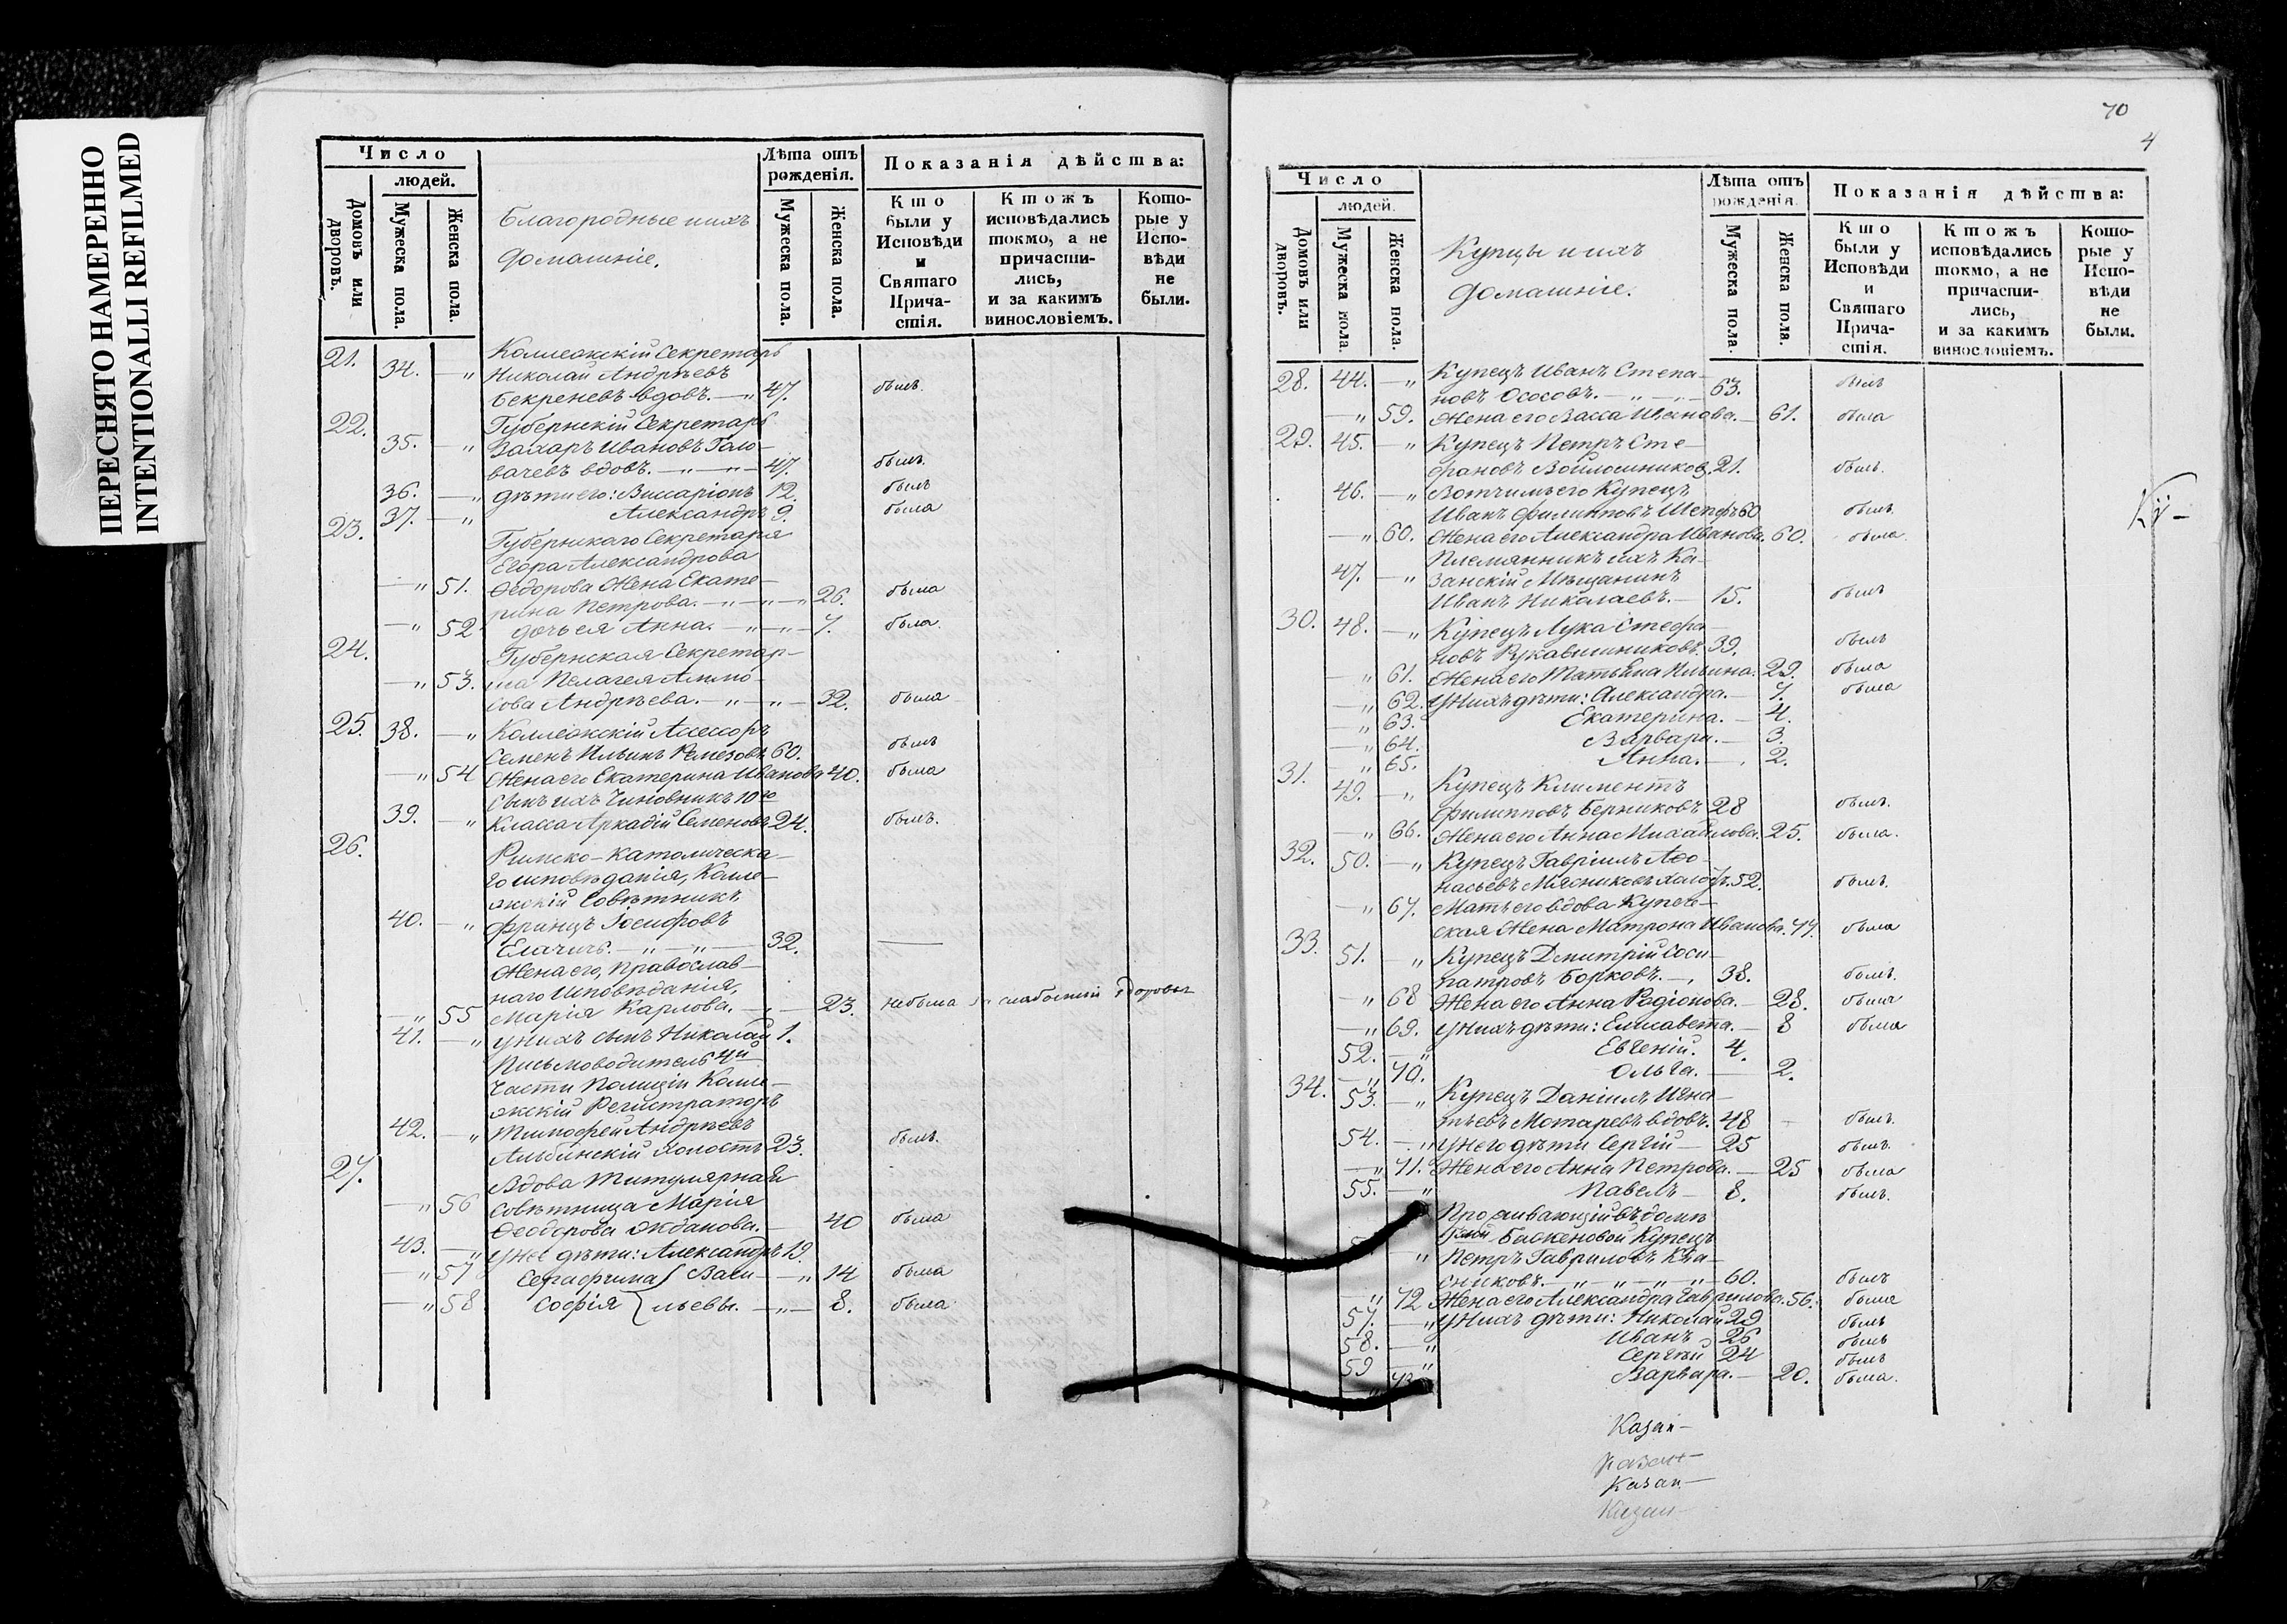 ПЕРЕСНЯТО НАМЕРЕННО
INTENTIONALLI REFILMED
Число
людей.
Домовъ или дворовъ.
Мужеска пола.
Женска пола.
Благородные и ихъ
домашніе.
Лѣта отъ
рожденія.
Мужеска пола.
Женска пола.
Показанія дѣйства:
Кто были у Исповѣди и Святаго Прича-стія.
Ктожъ исповѣдались токмо, а не причасти-лись, и за какимъ винословіемъ.
Кото-рые у Испо-вѣди не были.
21. Коллежскій Секретарь
34. — „ Николай Андрѣевъ
Бекреневъ вдовъ. — „ 47. былъ.
22. Губернскій Секретарь
35. — „ Захаръ Ивановъ Голо-
вачевъ вдовъ. — „ — „ — 47. былъ.
36. — „ дѣти его: Виссаріонъ 12. былъ
37. — „ Александръ 9. была
23. Губернскаго Секретаря
Егора Александрова
— „ 51. Ѳедорова Жена Екате-
рина Петрова. — „ — „ — „ 26. была
— „ 52 дочь ея Анна. — „ — „ — 7. была.
24. Губернская Секретар-
— „ 53. ша Пелагея
Андрѣева. — „ — „ — 32. была
25. 38. — „ Коллежскій Ассесоръ
Семенъ Ильинъ Ремезовъ 60. былъ
— „ 54 Жена его Екатерина Иванова 40. была
Сынъ ихъ Чиновникъ 10го
39. — „ Класса Аркадій Семеновъ 24. былъ.
26. Римско-католическа-
го исповѣданія, Колле-
жскій Совѣтникъ
40. — „ Францъ Іосифовъ
Елачичъ. — „ — „ — 32. —
Жена его, православ-
наго Исповѣданія,
— „ 55 Марія Карлова. — „ — 23. небыла по слабости здоровья
41. — „ у нихъ сынъ Николай 1.
Письмоводитель 4й
Части Полиціи Колле-
жскій Регистраторъ
42. — „ Тимофей Андрѣевъ
Альбинскій холостъ 23. былъ.
27. Вдова Титулярная
— „ 56 Совѣтница Марія
Ѳеодорова Жданова. — 40 была
43. — „ У неё дѣти: Александръ 19.
— „ 57 Серафима } Васи- — „ 14 была
— „ 58 Софія } льевы. — „ — 8. была
70
4
Число
людей.
Домовъ или дворовъ.
Мужеска пола.
Женска пола.
Купцы и ихъ
домашніе.
Лѣта отъ
рожденія.
Мужеска пола.
Женска пола.
Показанія дѣйства:
Кто были у Исповѣди и Святаго Прича-стія.
Ктожъ исповѣдались токмо, а не причасти-лись, и за какимъ винословіемъ.
Кото-рые у Испо-вѣди не были.
28. 44. — „ Купецъ Иванъ Степа-
новъ Ососовъ. — „ — „ 63. былъ
— „ 59. Жена его Васса Иванова. — 61. была
29. 45. — „ Купецъ Петръ Сте-
фановъ Войлошников. 21. былъ.
46. — „ Вотчимъ его Купецъ
Иванъ Филипповъ 60 былъ.
— „ 60. Жена его Александра Иванова. 60. была.
Племянникъ ихъ Ка-
47. — „ занскій Мѣщанинъ
Иванъ Николаевъ. — 15. былъ
30. 48. — „ Купецъ Лука Стефа-
новъ Рукавишниковъ. 39. былъ
— „ 61. Жена его Татьяна Ильина. 29. была
— „ 62. У нихъ дѣти: Александра. — 7. была
— „ 63. Екатерина. — 4.
— „ 64. Варвара. — 3.
— „ 65. Анна. — . 2.
31. 49. — „ Купецъ Климентъ
Филипповъ Берниковъ 28 былъ.
— „ 66. Жена его Анна Михайлова. 25. была.
32. 50. — „ Купецъ Гавріилъ Аѳо-
насьевъ Мясниковъ 52. былъ.
— „ 67. Мать его вдова Купече-
ская Жена Матрона Иванова. 77. была
33. 51. — „ Купецъ Дмитрій Соси-
патровъ Борковъ. — „ 38. былъ.
— „ 68 Жена его Анна Радіонова. — 28. была
— „ 69. у нихъ дѣти: Елисавета. — 8 была
52. — „ Евгеній. 4.
— „ 70. Ольга. — 2.
34. 53. — „ Купецъ Даніилъ Игна-
тьевъ Мотаревъ вдовъ. 48 былъ.
54. — „ У него дѣти Сергій — 25 былъ.
— „ 71. Жена его Анна Петрова. — 25 была
55. — „ Павелъ — 8. былъ.
Проживающій въ домѣ
Баженовой Купецъ
„ Петръ Гавриловъ Ква-
сниковъ. — „ — „ — „ — „ — 60. былъ
— „ 72 Жена его Александра Гаврилова. 56. была
57. — „ У нихъ дѣти: Николай 29 былъ
58. — „ Иванъ 26 былъ
59 — „ Сергѣй 24 былъ
„ 73 Варвара. — 20. была.
Ку-
Казан-
Казан-
Казан-
Казан-